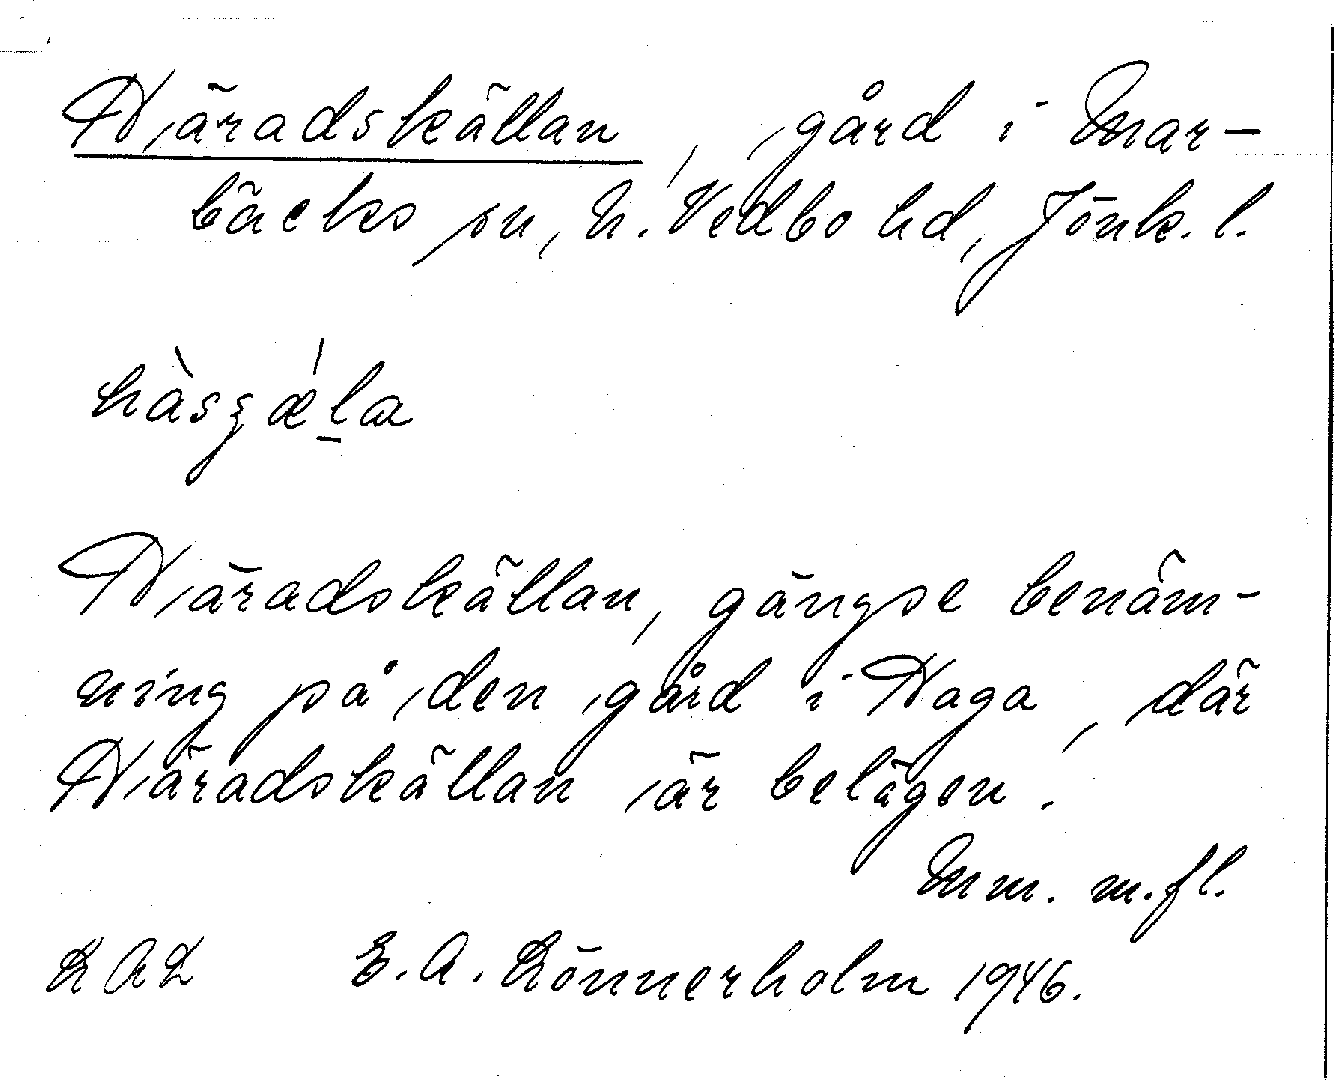 Häradskällan, gård i Mar-
bäcks sn, N. Vedbo hd, Jönk. l.
Häradskällan, gängse benäm-
ning på den gård i Haga, där
Häradskällan är belägen.
Mm. m. fl.
E. A. Lönnerholm 1946.